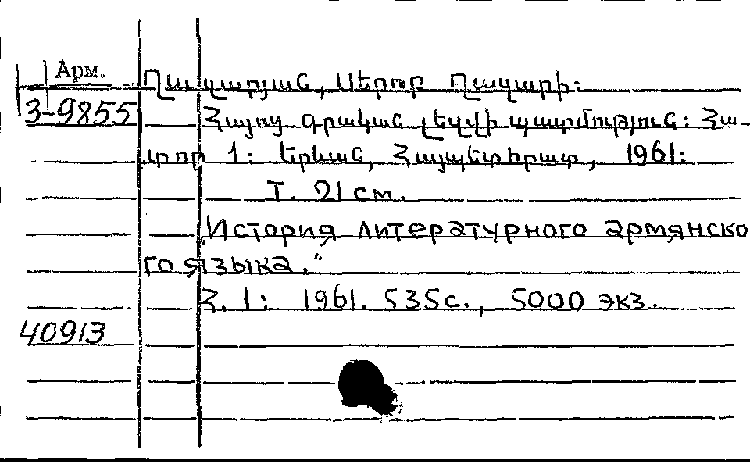 Арм.
Ղազարյան, Սերոբ Ղազարի:
3-9855
Հայոց գրական լեզվի պատմություն: Հա-
տոր 1: Երևան, Հայպետհրատ, 1961:
Т. 21 см.
„История литературного армянско
го языка.“
Հ. 1: 1961. 535с., 5000 экз.
40913